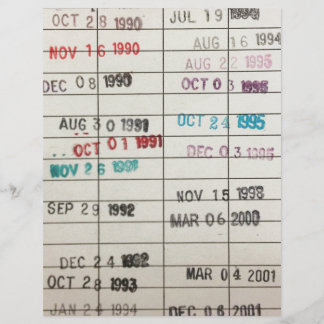 OCT 28 1990
NOV 16 1990
DEC 08 1990
AUG 30 1991
OCT 01 1991
NOV 26 1991
SEP 29 1992
DEC 24 1992
OCT 28 1993
JAN 24 1994
JUL 19
AUG 16 1994
AUG 22 1995
OCT 03 1995
OCT 24 1995
DEC 03 1995
NOV 15 1998
MAR 06 2000
MAR 04 2001
DEC 06 2001